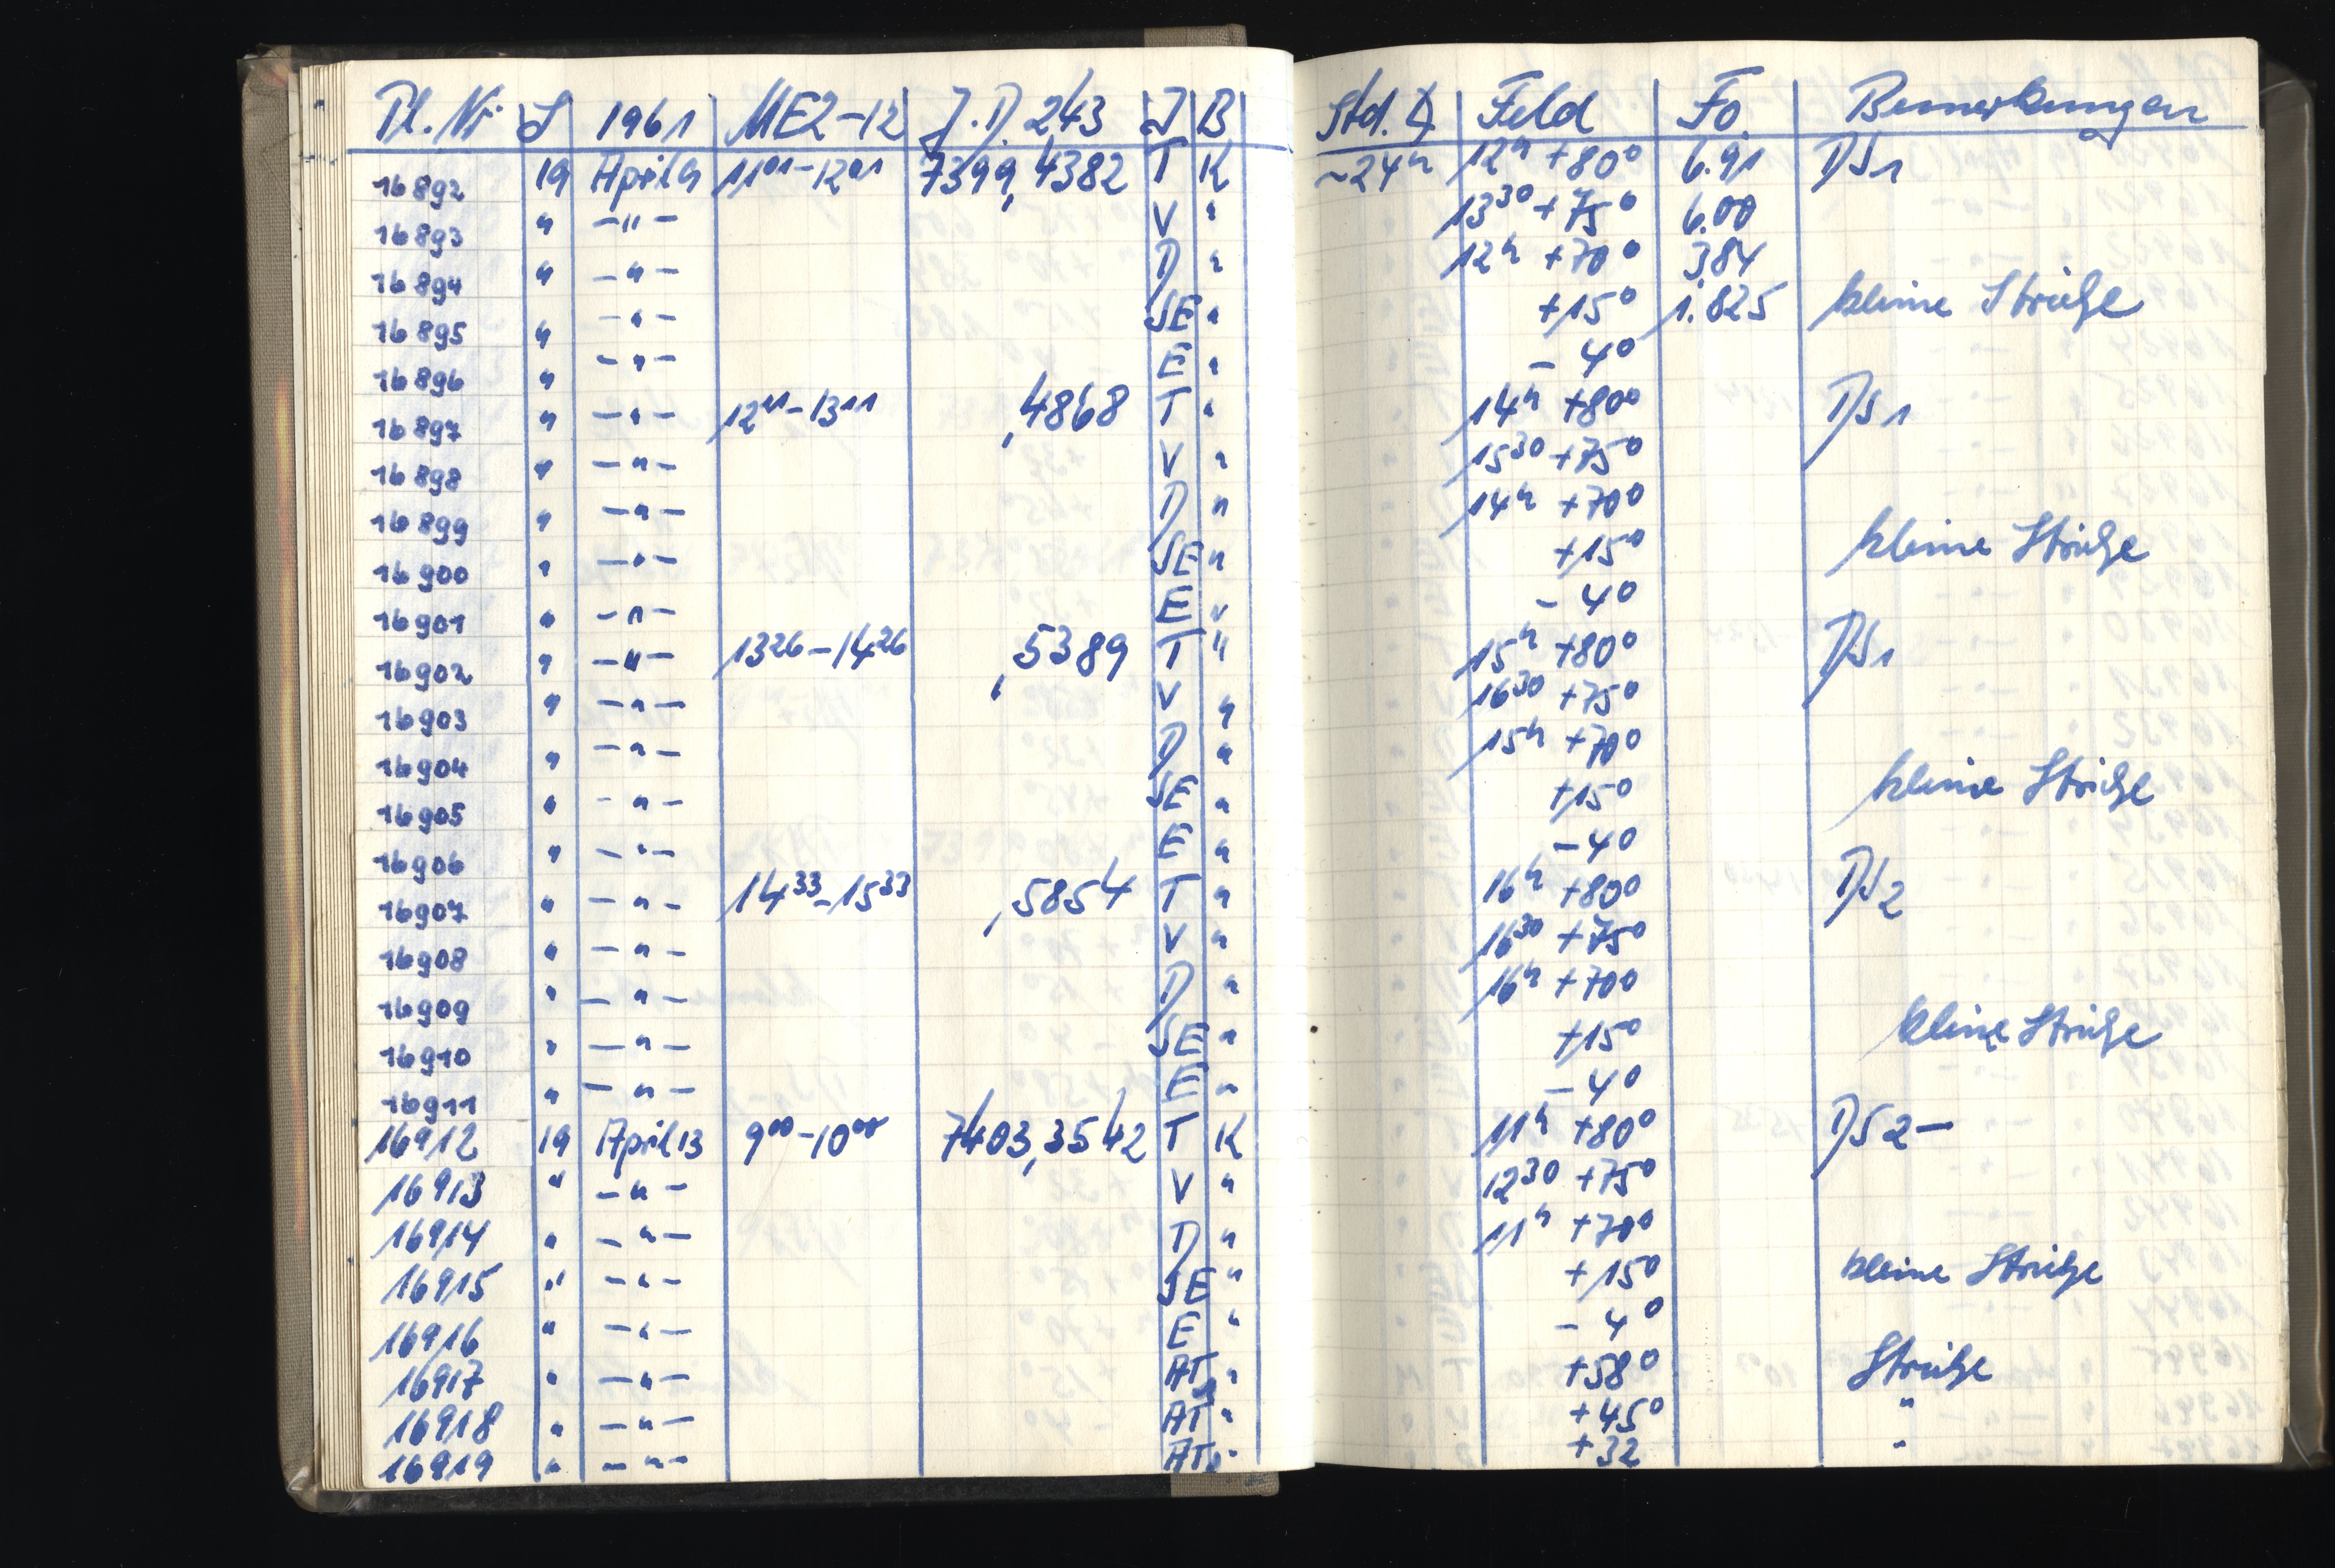 Pl. Nr S 1961 MEZ-12 J.D. 243 J B Std. ∢ Feld Fo. Bemerkungen
16892 19 April 9 11⁰¹-12⁰¹ 7399,4382 T K ~24ʰ 12ʰ +80° 6.91 DS1
16893 " -"- V " 13³⁰ +75° 6.00
16894 " -"- D " 12ʰ +70° 384
16895 " -"- SE " +15° 1.825 kleine Striche
16896 " -"- E " - 4°
16897 " -"- 12¹¹-13¹¹ ,4868 T " 14ʰ +80° DS1
16898 " -"- V " 15³⁰ +75°
16899 " -"- D " 14ʰ +70°
16900 " -"- SE " +15° kleine Striche
16901 " -"- E " - 4°
16902 " -"- 13²⁶-14²⁶ ,5389 T " 15ʰ +80° DS1
16903 " -"- V " 16³⁰ +75°
16904 " -"- D " 15ʰ +70°
16905 " -"- SE " +15° kleine Striche
16906 " -"- E " -4°
16907 " -"- 14³³-15³³ ,5854 T " 16ʰ +80° DS2
16908 " -"- V " 16³⁰ +75°
16909 " -"- D " 16ʰ +70°
16910 " -"- SE " +15° kleine Striche
16911 " -"- E " - 4°
16912 19 April 13 9⁰⁰-10⁰⁰ 7403,3542 T K 11ʰ +80° DS2-
16913 " -"- V " 12³⁰ +75°
16914 " -"- D " 11ʰ +70°
16915 " -"- SE " +15° kleine Striche
16916 " -"- E " - 4°
16917 " -"- AT " +58° Striche
16918 " -"- AT " +45° "
16919 " -"- AT " +32 "